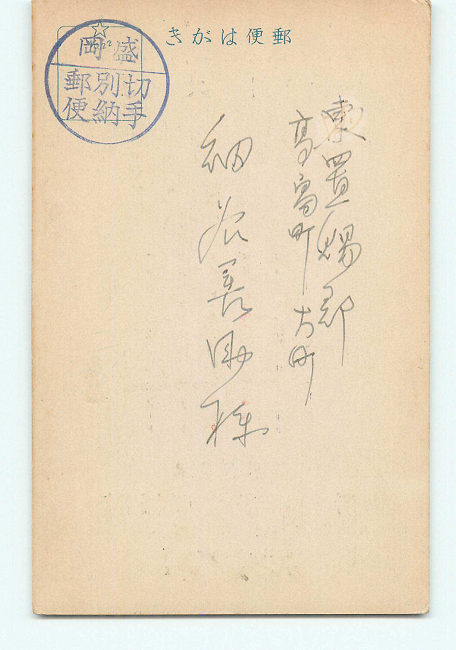 郵便はがき
盛岡
切手
別納
郵便
東置賜郡
高畠町大町
細谷善助様